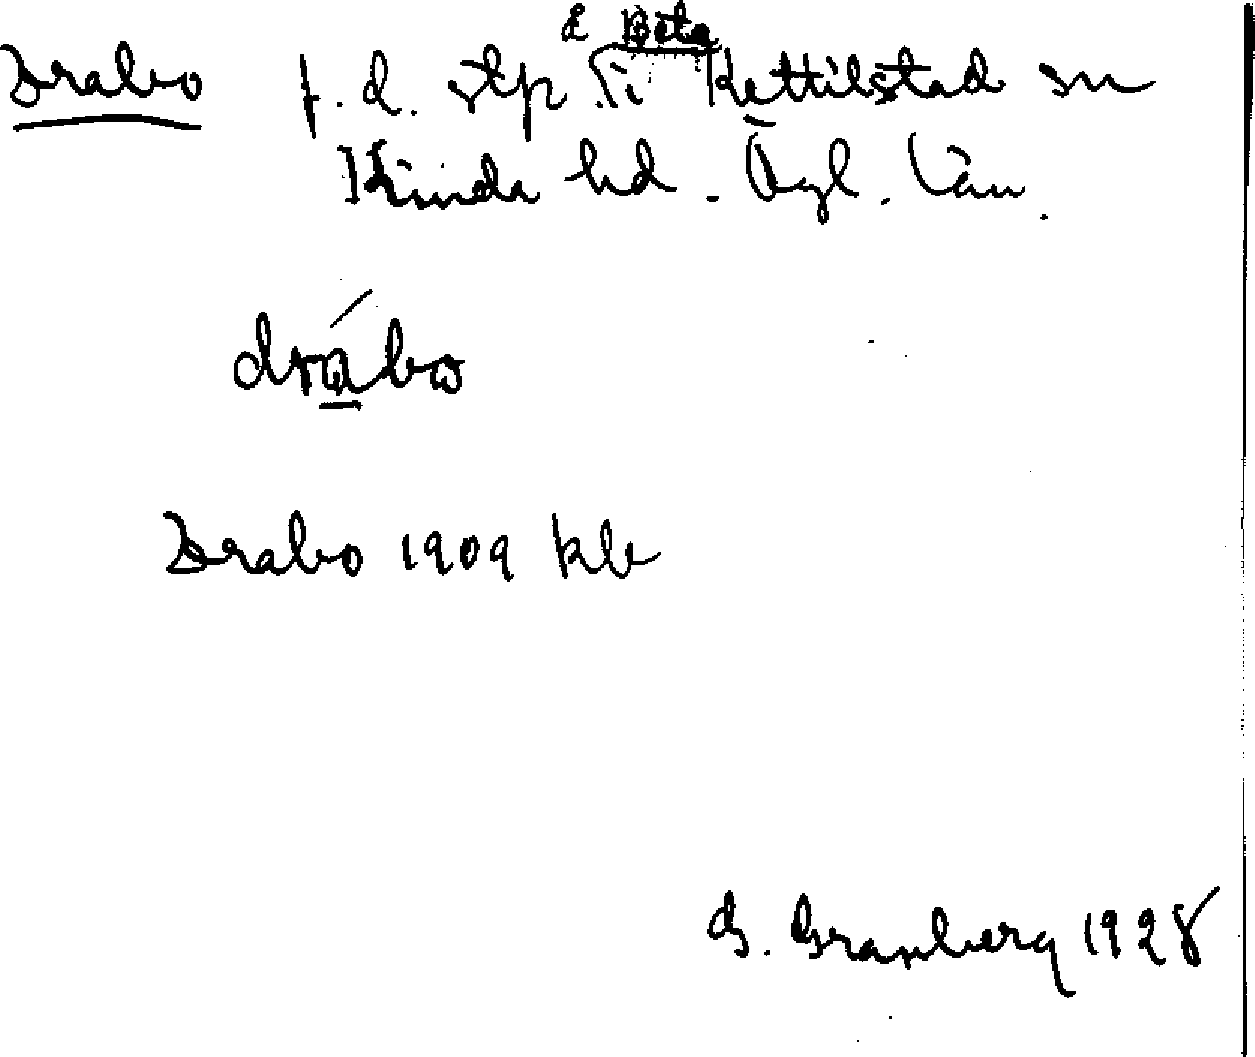 E Beta
Drabo f.d. stp. i Kettilstad sn
Kinda hd. Ögl. län.
drábo
Drabo 1909 kb
G. Granberg 1928